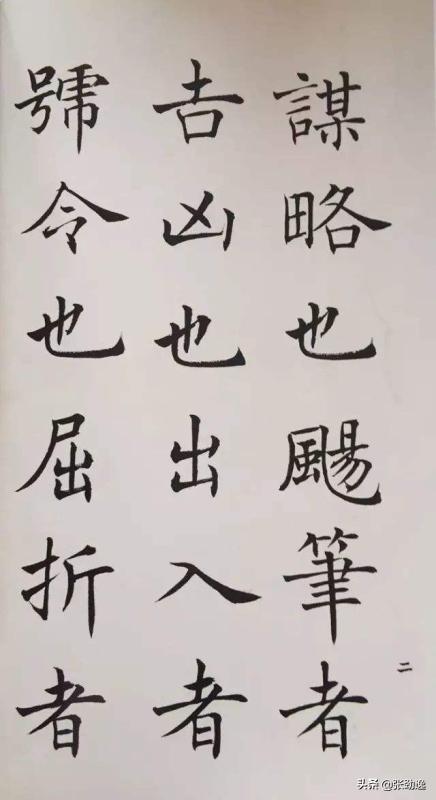 謀略也颺筆者
吉凶也出入者
號令也屈折者
二
头条 @张劲逸